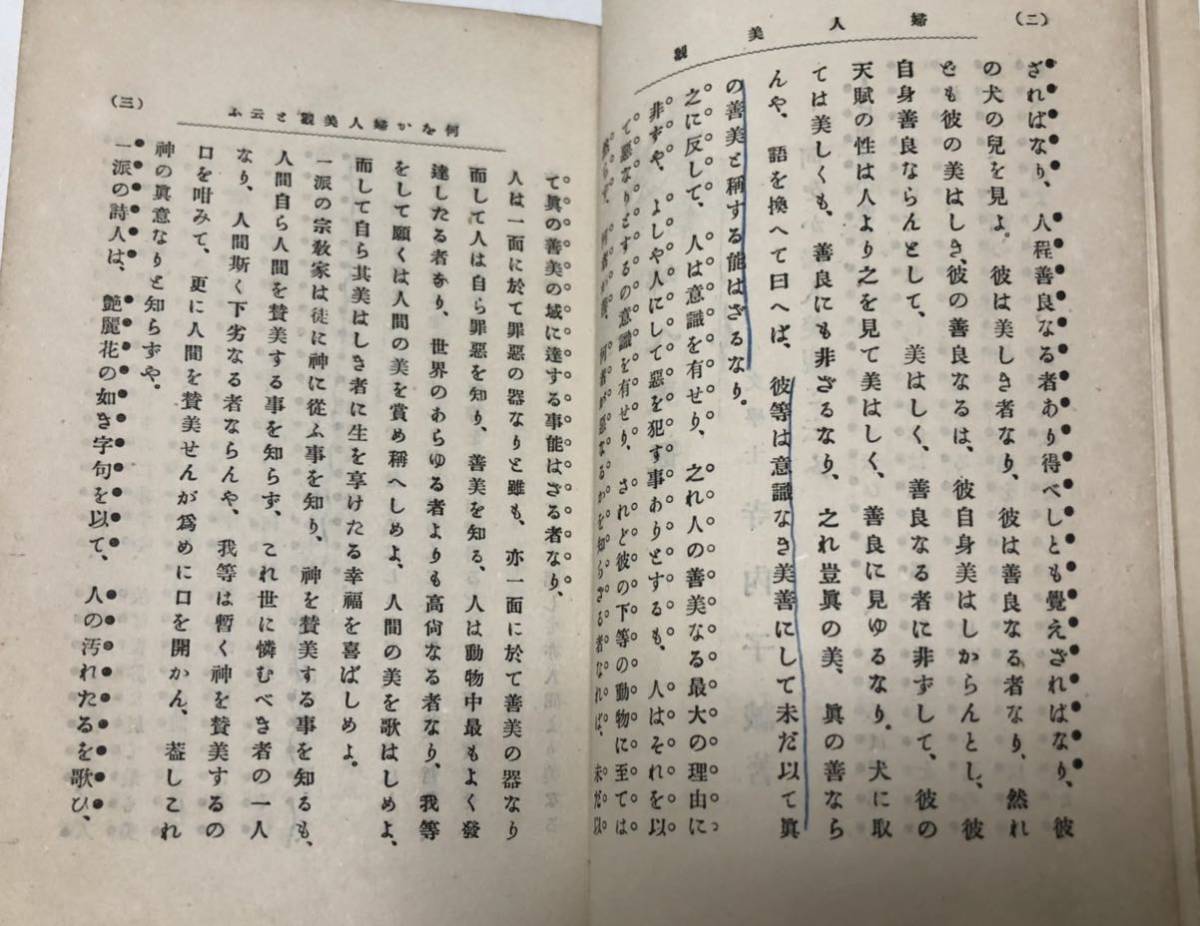 (二)
婦人美観
ざればなり、人程善良なる者あり得べしとも覺えざればなり、彼
の犬の兒を見よ。彼は美しき者なり、彼は善良なる者なり、然れ
ども彼の美はしき、彼の善良なるは、彼自身美はしからんとし、彼
自身善良ならんとして、美はしく、善良なる者に非ずして、彼の
天賦の性は人より之を見て美はしく、善良に見ゆるなり。犬に取
ては美しくも、善良にも非ざるなり、之れ豈眞の美、眞の善なら
んや、語を換へて曰へば、彼等は意識なき美善にして未だ以て眞
の善美と稱する能はざるなり。
之に反して、人は意識を有せり、之れ人の善美なる最大の理由に
非ずや、よしや人にして惡を犯す事ありとするも、人はそれを以
て惡なりとするの意識を有せり、されど彼の下等の動物に至ては
然らず、何者が善、何者が惡なるかを知らざる者なれば、未だ以
何をか婦人美觀と云ふ
(三)
て眞の善美の域に達する事能はざる者なり、
人は一面に於て罪惡の器なりと雖も、亦一面に於て善美の器なり
而して人は自ら罪惡を知り、善美を知る、人は動物中最もよく發
達したる者なり、世界のあらゆる者よりも高尙なる者なり、我等
をして願くは人間の美を賞め稱へしめよ、人間の美を歌はしめよ、
而して自ら其美はしき者に生を享けたる幸福を喜ばしめよ。
一派の宗敎家は徒に神に從ふ事を知り、神を賛美する事を知るも、
人間自ら人間を賛美する事を知らず、これ世に憐むべき者の一人
なり、人間斯く下劣なる者ならんや、我等は暫く神を賛美するの
口を咁みて、更に人間を賛美せんが爲めに口を開かん、蓋しこれ
神の眞意なりと知らずや。
一派の詩人は、艶麗花の如き字句を以て、人の汚れたるを歌ひ、